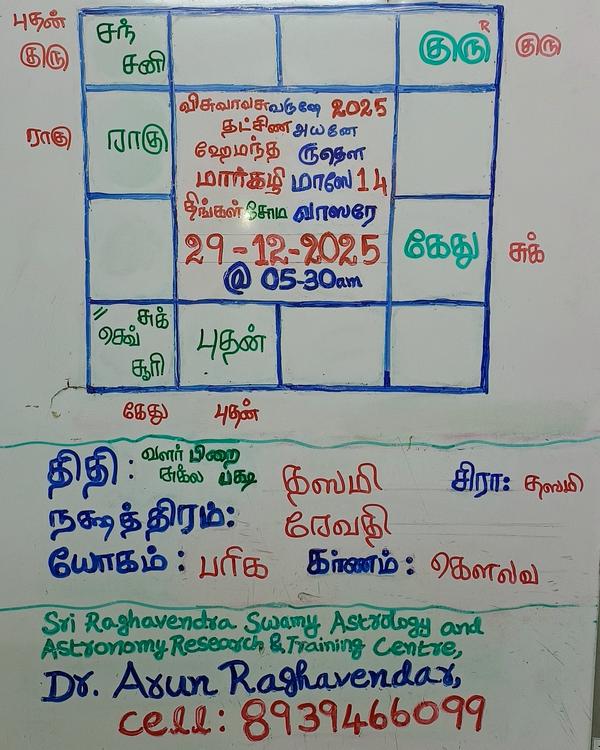 புதன்
குரு
சந்
சனி
R
குரு
குரு
ராகு
ராகு
விசுவாவசுவருஷே 2025
தட்சிண அயனே
ஹேமந்த ருதௌ
மார்கழி மாஸே 14
திங்கள் சோம வாஸரே
29-12-2025
@ 05-30am
கேது
சுக்
// சுக்
செவ்
சூரி
புதன்
கேது
புதன்
திதி : வளர் பிறை
சுக்ல பக்ஷ
தஸமி
சிரா: தஸமி
நக்ஷத்திரம்: ரேவதி
யோகம் : பரிக கரணம் : கௌலவ
Sri Raghavendra Swamy Astrology and
Astronomy Research & Training Centre,
Dr. Arun Raghavendar,
Cell : 8939466099